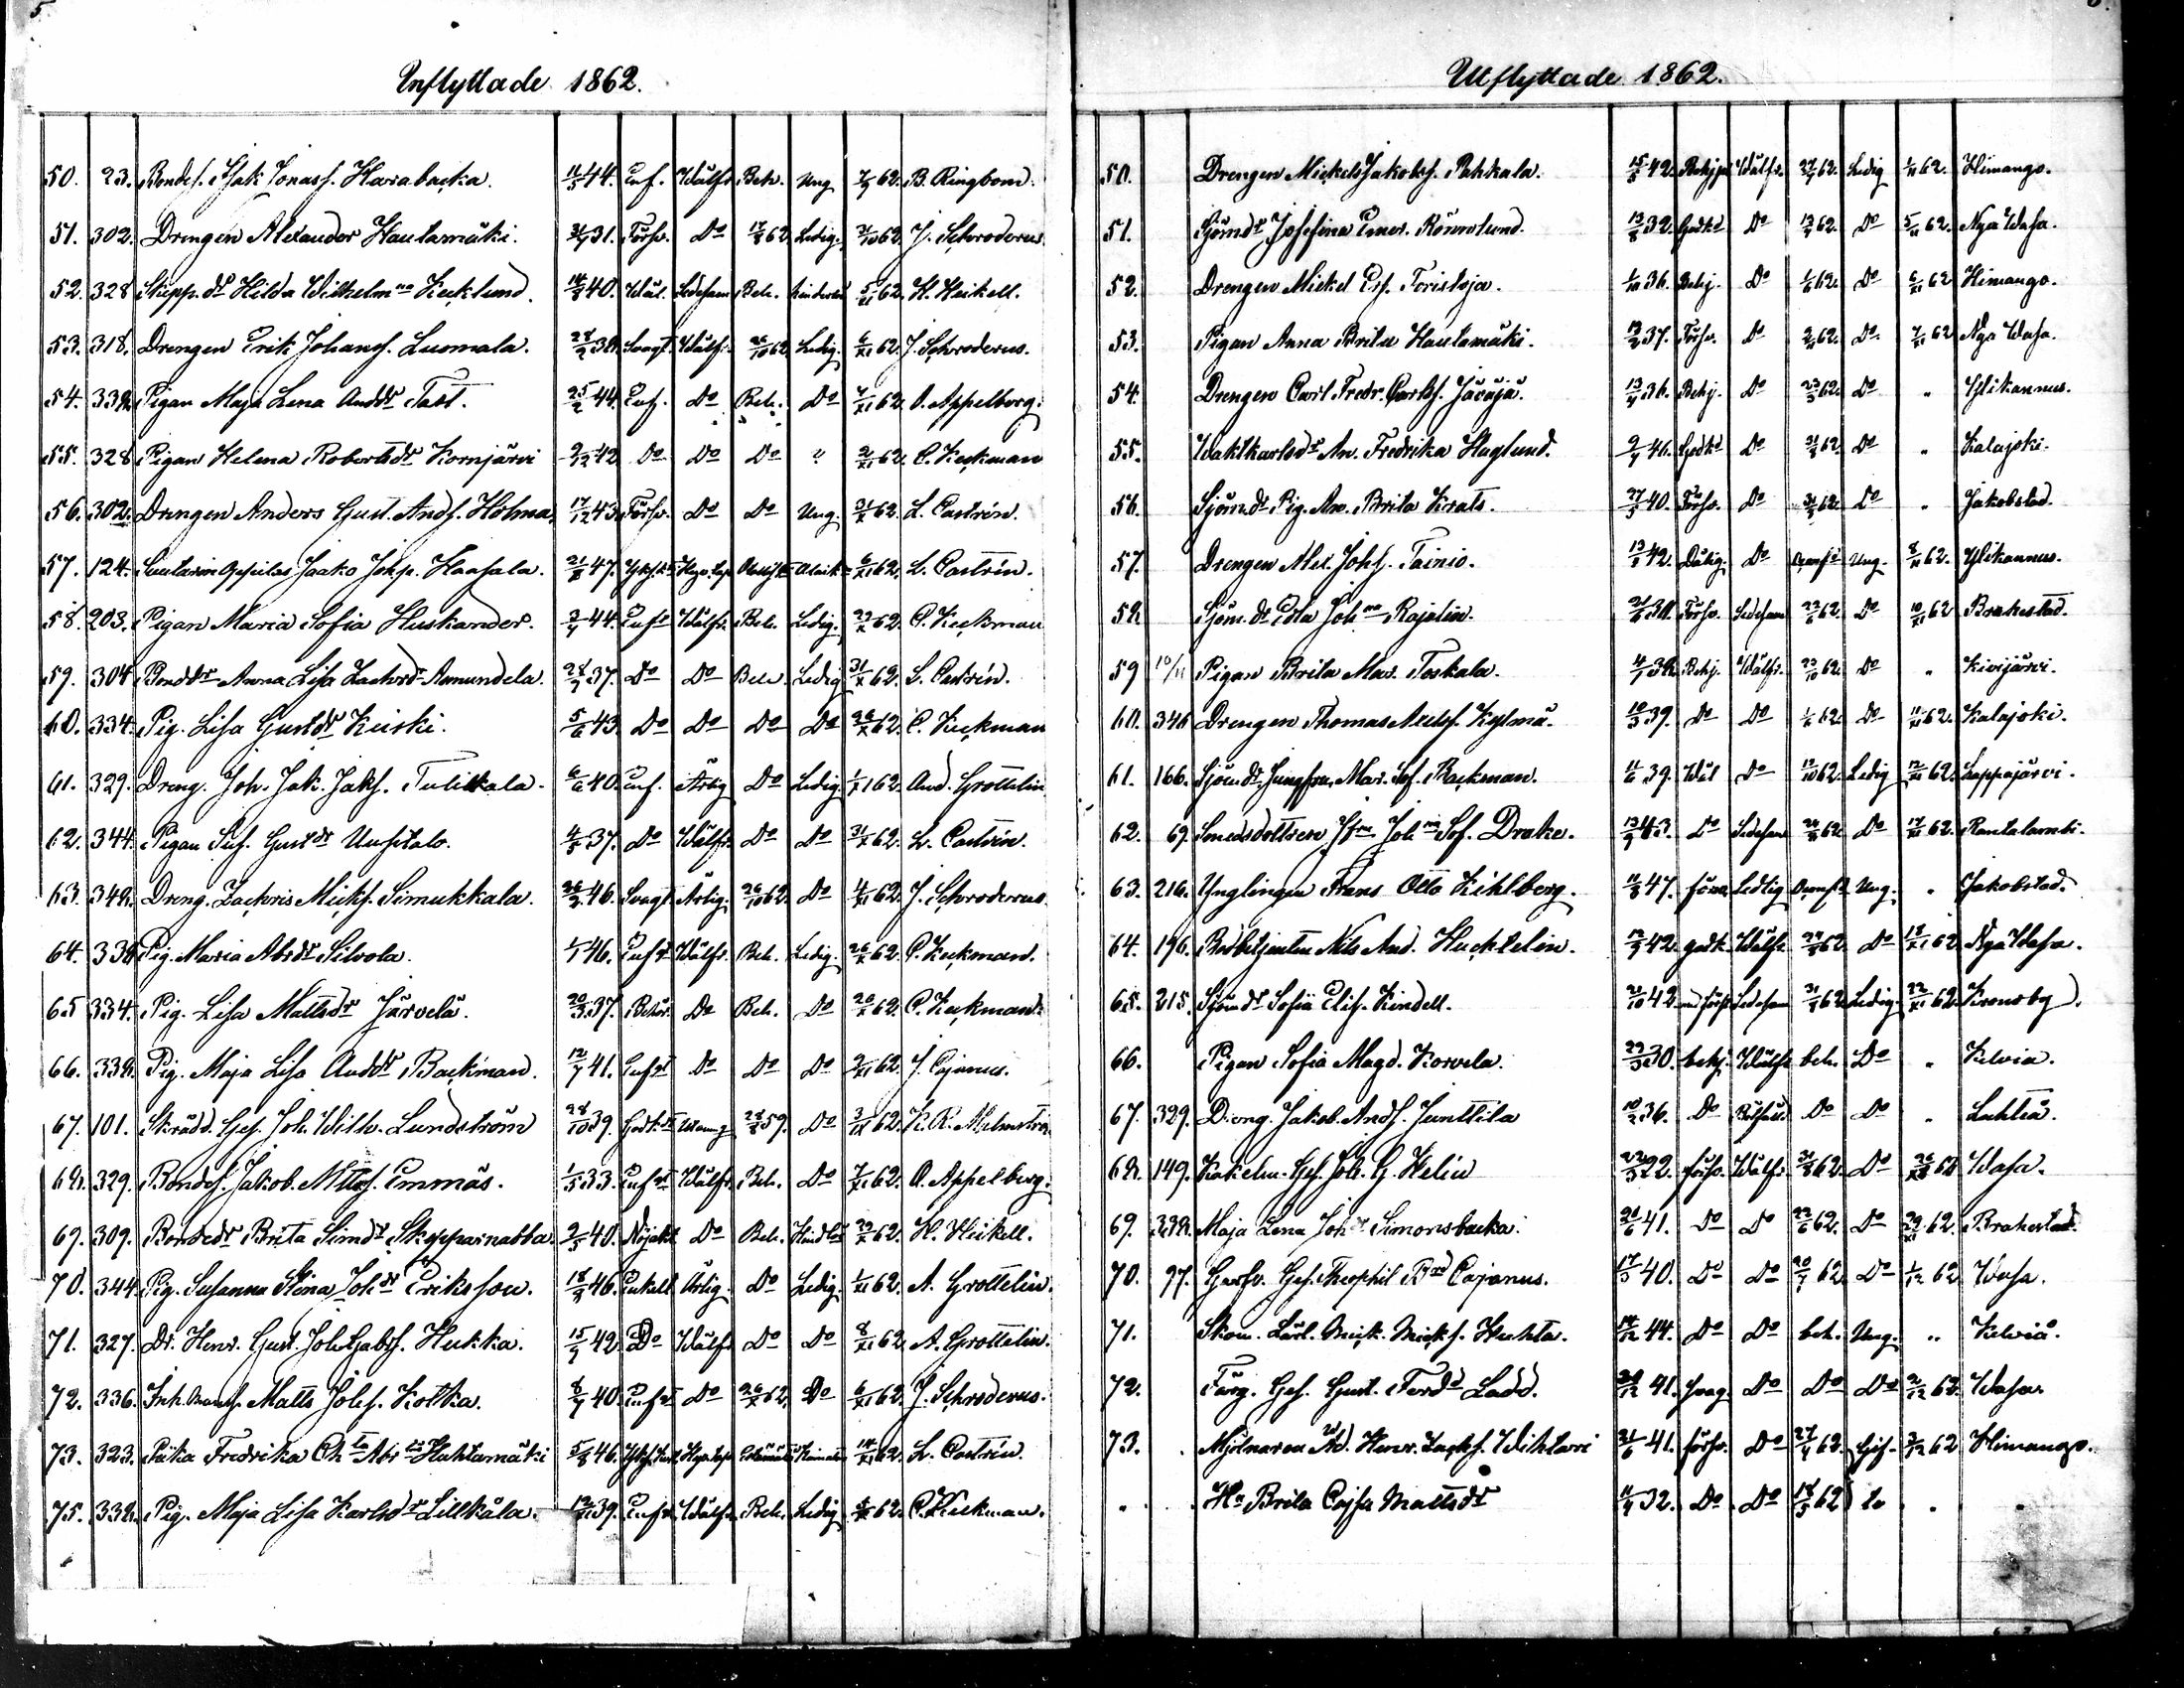 5
Inflyttade 1862.
50. 23. Bondes. Isak Jonass. Harabacka. 11/5 44. Enf. Wälfr. Beh. Ung 7/9 62. B. Ringbom.
51. 302. Drengen Alexander Hautamäki. 31/7 31. Förs. Do 17/8 62 Ledig. 31/10 62. J. Schroderus.
52. 328 Skepp. dr Hilda Wilhelmna Kecklund. 14/8 40. Wäl. Ledesam Beh. hinderlös 5/XI 62. H. Heikell.
53. 318. Drengen Erik Johans. Luomala. 28/2 38. Svagt. Wälfr. 26/10 62. Ledig. 6/XI 62. J. Schroderus.
54. 338. Pigan Maja Lena Anddr Tast. 25/2 44. Enf. Do Beh. Do 7/XI 62. O. Appelberg.
55. 328 Pigan Helena Robertsdr Kornjärvi 2/12 42 Do Do Do " 2/XI 62. C. Keckman
56. 302. Drengen Anders Gust. Ands. Holma. 17/12 43. Förs. Do Do Ung. 31/X 62. L. Castrén.
57. 124. Jaako Johp. Haasala. 21/8 47. 6/XI 62. L. Castrén.
58. 203. Pigan Maria Sofia Huskander. 3/4 44. Enft Wälfr. Beh. Ledig. 29/X 62. C. Keckman
59. 304 Bonddr Anna Lisa Zachrdr Annundela. 28/7 37. Do Do Beh. Ledig 31/X 62. L. Castrén.
60. 334. Pig. Lisa Gustdr Keiski. 5/6 43. Do Do Do Do 26/X 62. C. Keckman
61. 329. Dreng. Joh. Jak. Jaks. Tulikkala. 6/6 40. Enf. Ärlig Do Ledig 1/XI 62. And. Grottelin.
62. 344. Pigan Sus. Gustdr Uusitalo. 4/5 37. Do Wälfr. Do Do 31/X 62. L. Castrén.
63. 348. Dreng. Zachris Micks. Simukkala. 26/2 46. Svagt Ärlig. 26/10 62. Do 4/XI 62. J. Schroderus.
64. 338 Pig. Maria Abrdr Silvola. 1/1 46. Enft Wälfr. Beh. Ledig. 26/X 62. C. Keckman.
65 334. Pig. Lisa Mattsdr Järvelä. 20/3 37. Do Beh. Do 20/X 62. C. Keckman.
66. 338. Pig. Maja Lisa Anddr Backman. 12/7 41. Enft Do Do Do 2/XI 62. J. Cajanus.
67. 101. Skrädd. Ges. Joh. Wilh. Lundström 28/10 39. Godkt 28/8 59. Do 3/IX 62. K. R. Malmström
68. 329. Bondes. Jakob Matts. Emmäs. 1/5 33. Enft Wälfr. Beh. Do 7/XI 62. O. Appelberg.
69. 309. Bondedr Brita Simdr Skepparnabba. 2/5 40. Nöjakt Do Beh. Hindlös 29/X 62. H. Heikell.
70. 344 Pig. Susanna Stina Johdr Eriksson. 18/3 46. Enkelt Ärlig. Do Ledig. 1/XI 62. A. Grottelin.
71. 327. Dr. Henr. Gust. Joh. Gabrs. Hukka. 15/7 42. Do Wälfr. Do Do 8/XI 62. A. Grottelin.
72. 336. Inh. Matts Johs. Kotka. 8/7 40. Enft Do 26/X 62. Do 6/XI 62. J. Schroderus.
73. 323. Piika Fredrika Chta Abrts Huhtamäki 5/8 46. 14/XI 62. L. Castrén.
75. 338. Pig. Maja Lisa Karlsdr Lillkåla. 39. Enft Wälfr. Beh. Ledig 62. C. Keckman.
Utflyttade 1862.
50. Drengen Mickels Jakobs. Pehkala. 15/8 42. Behj. Wälfr. 27/7 62. Ledig 1/11 62. Himango.
51. Sjömdr Josefina Emer. Rönnlund. 13/8 32. Godkt Do 13/7 62. Do 5/11 62. Nya Wasa.
52. Drengen Mickel Ers. Toristoja. 1/10 36. Behj. Do 1/6 62. Do 6/XI 62 Himango.
53. Pigan Anna Brita Hautamäki. 12/2 37. Förs. Do 2/11 62. Do 7/XI 62 Nya Wasa.
54. Drengen Carl Fredr. Carls. Jääjä. 13/4 36. Behj. Do 23/3 62. Do " Ylikannus.
55. Waktkarlsdr An. Fredrika Haglund. 9/4 46. Godkt Do 31/8 62. Do " Kalajoki.
56. Sjömdr Pig. An. Brita Krats. 27/5 40. Förs. Do 31/8 62. Do " Jakobstad.
57. Drengen Alex. Johs. Tainio. 13/1 42. Dålig. Do Ung. 8/11 62. Ylikannus.
58 Sjöm. dr Edla Johna Rajelin. 21/6 38. Förs. Ledesam 22/6 62 Do 10/XI 62 Brahestad.
59 10/11 Pigan Brita Mar. Toskala. 4/7 38. Behj. Wälfr. 23/10 62. Do " Kivijärvi.
60. 346 Drengen Thomas Mats. Kylmä. 10/3 39. Do Do 1/6 62. Do 11/XI 62. Kalajoki.
61. 166. Sjömdr Jungfru Mar. Sof. Backman. 11/6 39. Wäl Do 12/10 62. Ledig 12/XI 62. Lappajärvi.
62. 69. Smedsdottren Jfru Johna Sof. Drake. 13/9 43. Do Ledesam 24/8 62 Do 17/XI 62. Rautalambi.
63. 216. Ynglingen Frans Otto Kihlberg. 11/8 47. försv. Ledlig Ung. " Jakobstad.
64. 196. Bodbetjenten Nils And. Huchtelin. 12/3 42. godk. Wälfr. 24/8 62. Do 18/XI 62 Nya Wasa.
65. 215. Sjömdr Sofia Elis. Kindell. 21/10 42 Ledesam 31/8 62 Ledig. 22/XI 62. Kronoby.
66. Pigan Sofia Magd. Korvela. 29/3 30. behj. Wälfr. beh. Do " Kelviå.
67. 329. Dreng. Jakob Ands. Junttila 10/2 36. Do Do Do " Lahtis.
68. 149. Kakelm. Ges. Joh. G. Helin 22/3 22. förs. Wälfr. 31/8 62. Do 26/XI 62 Wasa.
69. 338. Maja Lena Johdr Simonsbacka. 21/6 41. Do Do 22/6 62. Do 29/XI 62. Brahestad.
70. 97. Garfv. Ges. Theophil Brd Cajanus. 17/3 40. Do Do 20/7 62 Do 1/12 62 Wasa.
71. Skom. Lärl. Mick. Micks. Huhta. 14/12 44. Do Do beh. Ung. " Kelviå.
72. Färg. Ges. Gust. Ferdd Ladd. 20/12 41. svag. Do Do Do 2/12 62. Wasa.
73. Mjölnaren Ad. Henr. Zachs. Wihtari 21/6 41. förs. Do 27/4 62. Gif. 3/12 62 Himango.
" Hu Brita Cajsa Mattsdr 11/4 32. Do Do 18/5 62 " "